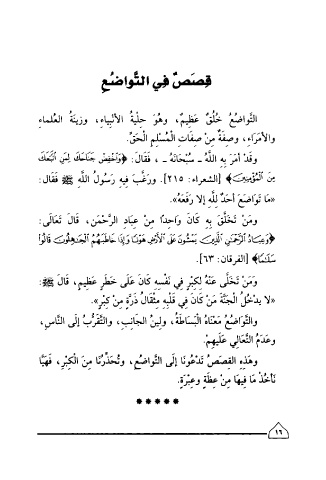 قِصَصٌ فِي التَّوَاضُعِ
التَّوَاضُعُ خُلُقٌ عَظِيمٌ، وَهُوَ حِلْيَةُ الأَنْبِيَاءِ، وَزِينَةُ العُلَمَاءِ
وَالأُمَرَاءِ، وَصِفَةٌ مِنْ صِفَاتِ المُسْلِمِ الحَقِّ.
وَقَدْ أَمَرَ بِهِ اللَّهُ ـ سُبْحَانَهُ ـ ، فَقَالَ: ﴿وَاخْفِضْ جَنَاحَكَ لِمَنِ اتَّبَعَكَ
مِنَ الْمُؤْمِنِينَ﴾ [الشعراء: ٢١٥]. وَرَغَّبَ فِيهِ رَسُولُ اللَّهِ ﷺ فَقَالَ:
«مَا تَوَاضَعَ أَحَدٌ لِلَّهِ إِلَّا رَفَعَهُ».
وَمَنْ تَخَلَّقَ بِهِ كَانَ وَاحِدًا مِنْ عِبَادِ الرَّحْمَنِ، قَالَ تَعَالَى:
﴿وَعِبَادُ الرَّحْمَنِ الَّذِينَ يَمْشُونَ عَلَى الْأَرْضِ هَوْنًا وَإِذَا خَاطَبَهُمُ الْجَاهِلُونَ قَالُوا
سَلَامًا﴾ [الفرقان: ٦٣].
وَمَنْ تَخَلَّى عَنْهُ لِكِبْرٍ فِي نَفْسِهِ كَانَ عَلَى خَطَرٍ عَظِيمٍ، قَالَ ﷺ:
«لَا يَدْخُلُ الْجَنَّةَ مَنْ كَانَ فِي قَلْبِهِ مِثْقَالُ ذَرَّةٍ مِنْ كِبْرٍ».
وَالتَّوَاضُعُ مَعْنَاهُ الْبَسَاطَةُ، وَلِينُ الجَانِبِ، وَالتَّقَرُّبُ إِلَى النَّاسِ،
وَعَدَمُ التَّعَالِي عَلَيْهِمْ.
وَهَذِهِ القِصَصُ تَدْعُونَا إِلَى التَّوَاضُعِ، وَتُحَذِّرُنَا مِنَ الْكِبْرِ، فَهَيَّا
نَأْخُذْ مَا فِيهَا مِنْ عِظَةٍ وَعِبْرَةٍ.
*****
١٦